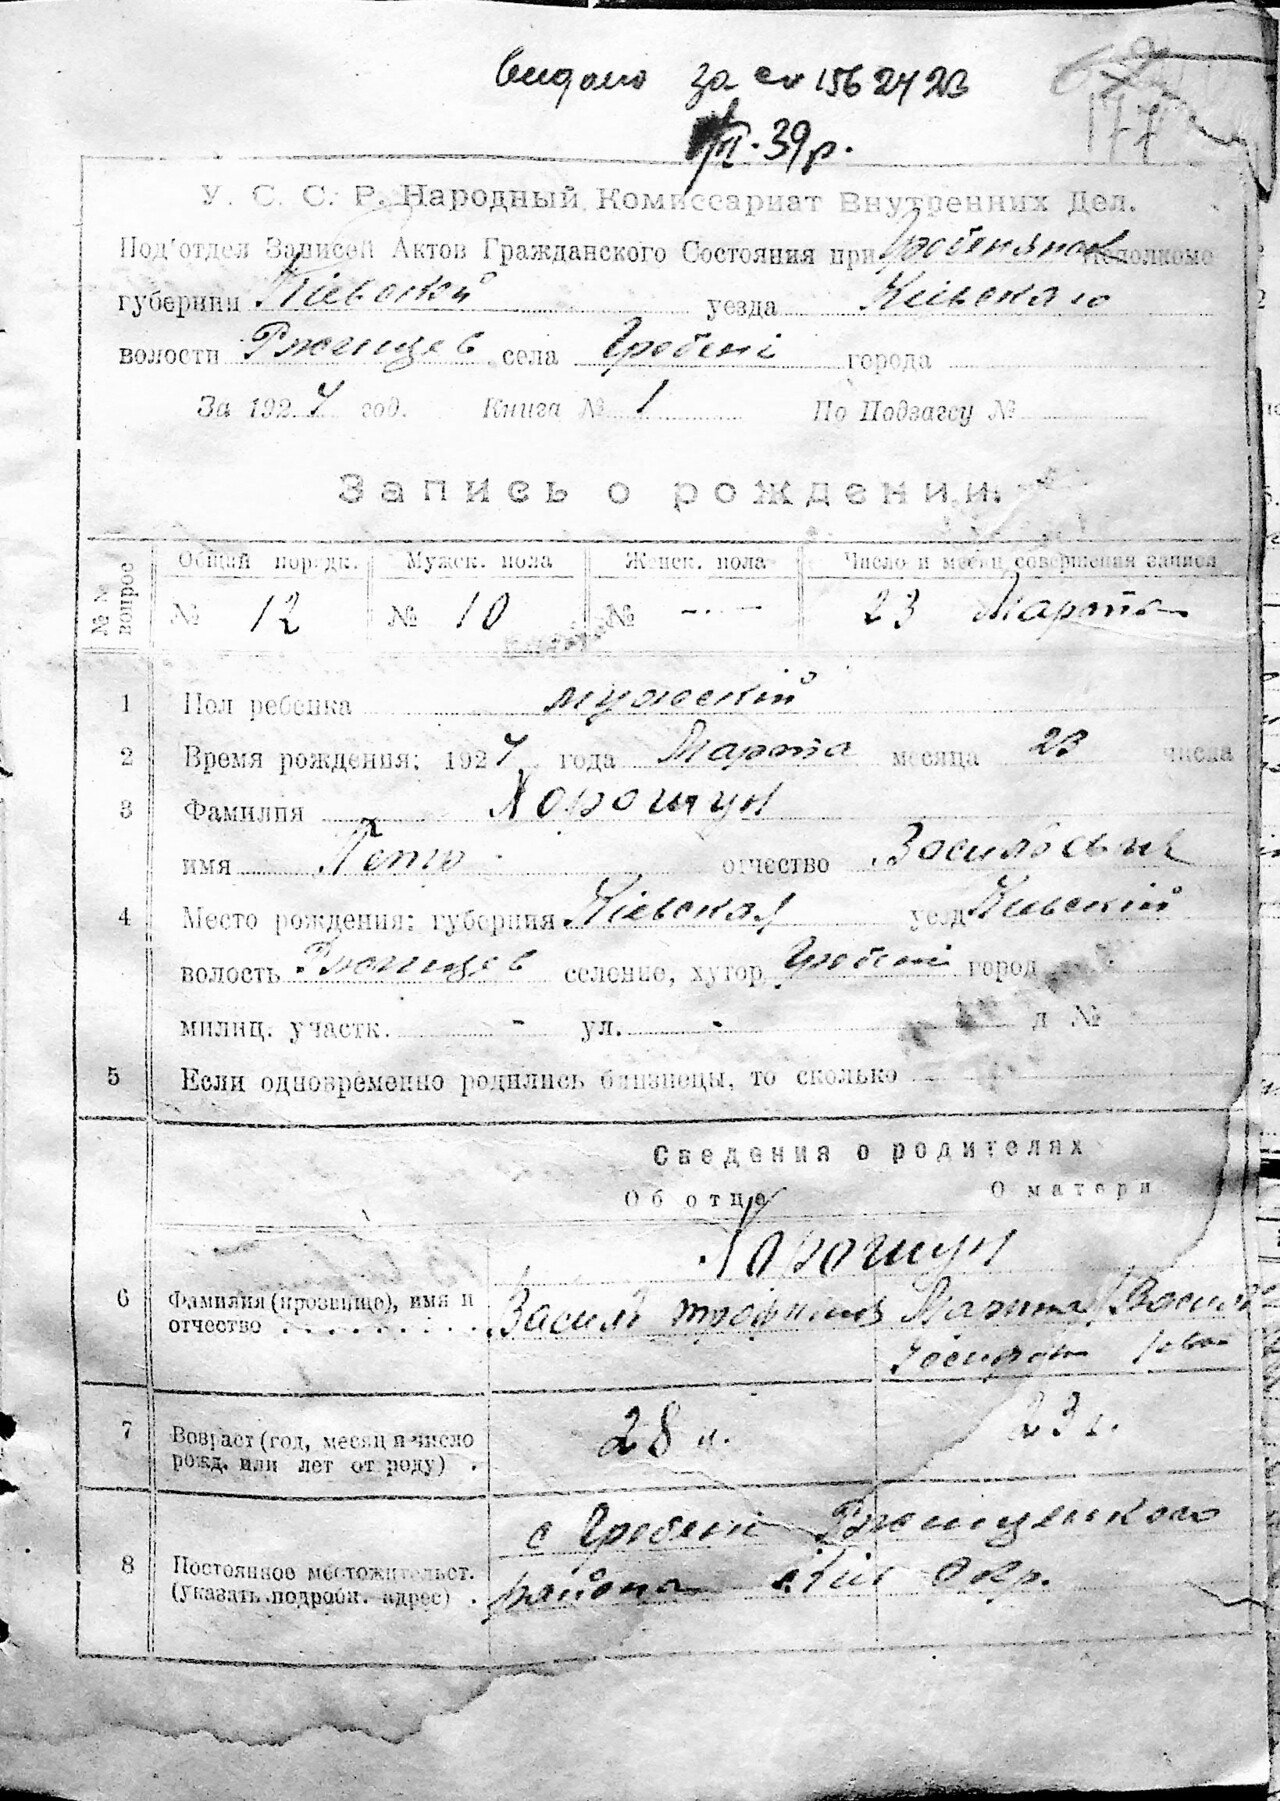 видано за св 156 24 2В
39 р.
177
У. С. С. Р. Народный Комиссариат Внутренних Дел.
Под'отдел Записей Актов Гражданского Состояния при Гребенянск Исполкоме
губернии Кіевскій уезда Кіівскаго
волости Ржищев села Гребені города
За 1924 год. Книга № 1 По Подзагсу №
Запись о рождении.
№№ вопрос Общий порядк. Мужск. пола Женск. пола Число и месяц совершения записи
№ 12 № 10 № - - 23 Марта
1 Пол ребенка мужескій
2 Время рождения: 1924 года Марта месяца 23 числа
3 Фамилия Хорошун
имя Петро отчество Васильевич
4 Место рождения: губерния Кіевская уезд Киевскій
волость Ржищев селение, хутор Гребені город
милиц. участк. - ул. - д №
5 Если одновременно родились близнецы, то сколько
Сведения о родителях
Об отце О матери
Хорошун
6 Фамилия (прозвище), имя и
отчество Василь Трофимов
7 Возраст (год, месяц и число
рожд. или лет от роду) 28 л. 23 г.
с Гребені Ржищенкого
8 Постоянное местожительст.
(указать подробн. адрес) района Киів Окр.